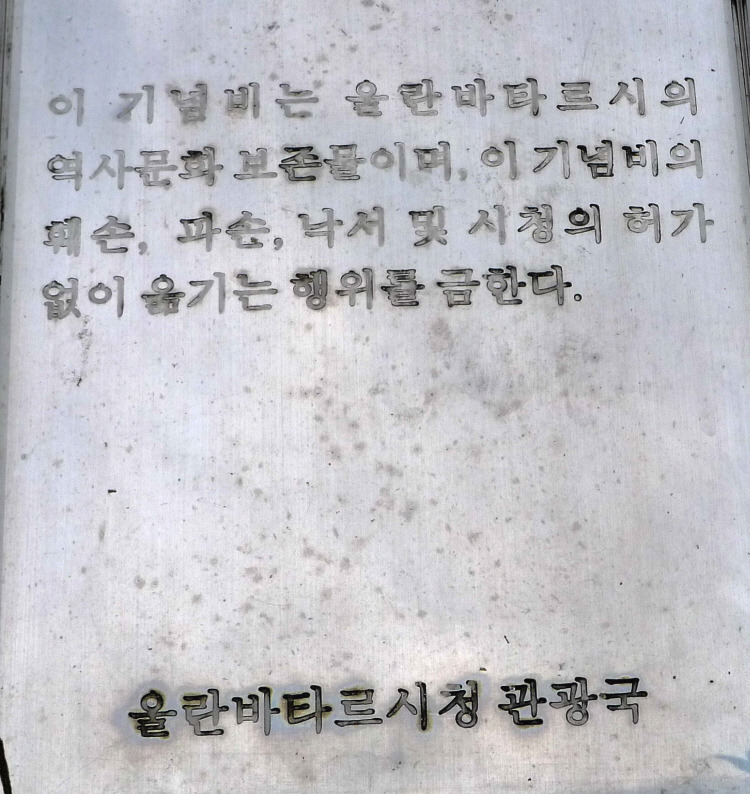 이 기념비는 울란바타르시의
역사문화 보존물이며, 이 기념비의
훼손, 파손, 낙서 및 시청의 허가
없이 옮기는 행위를 금한다.
울란바타르시청 관광국